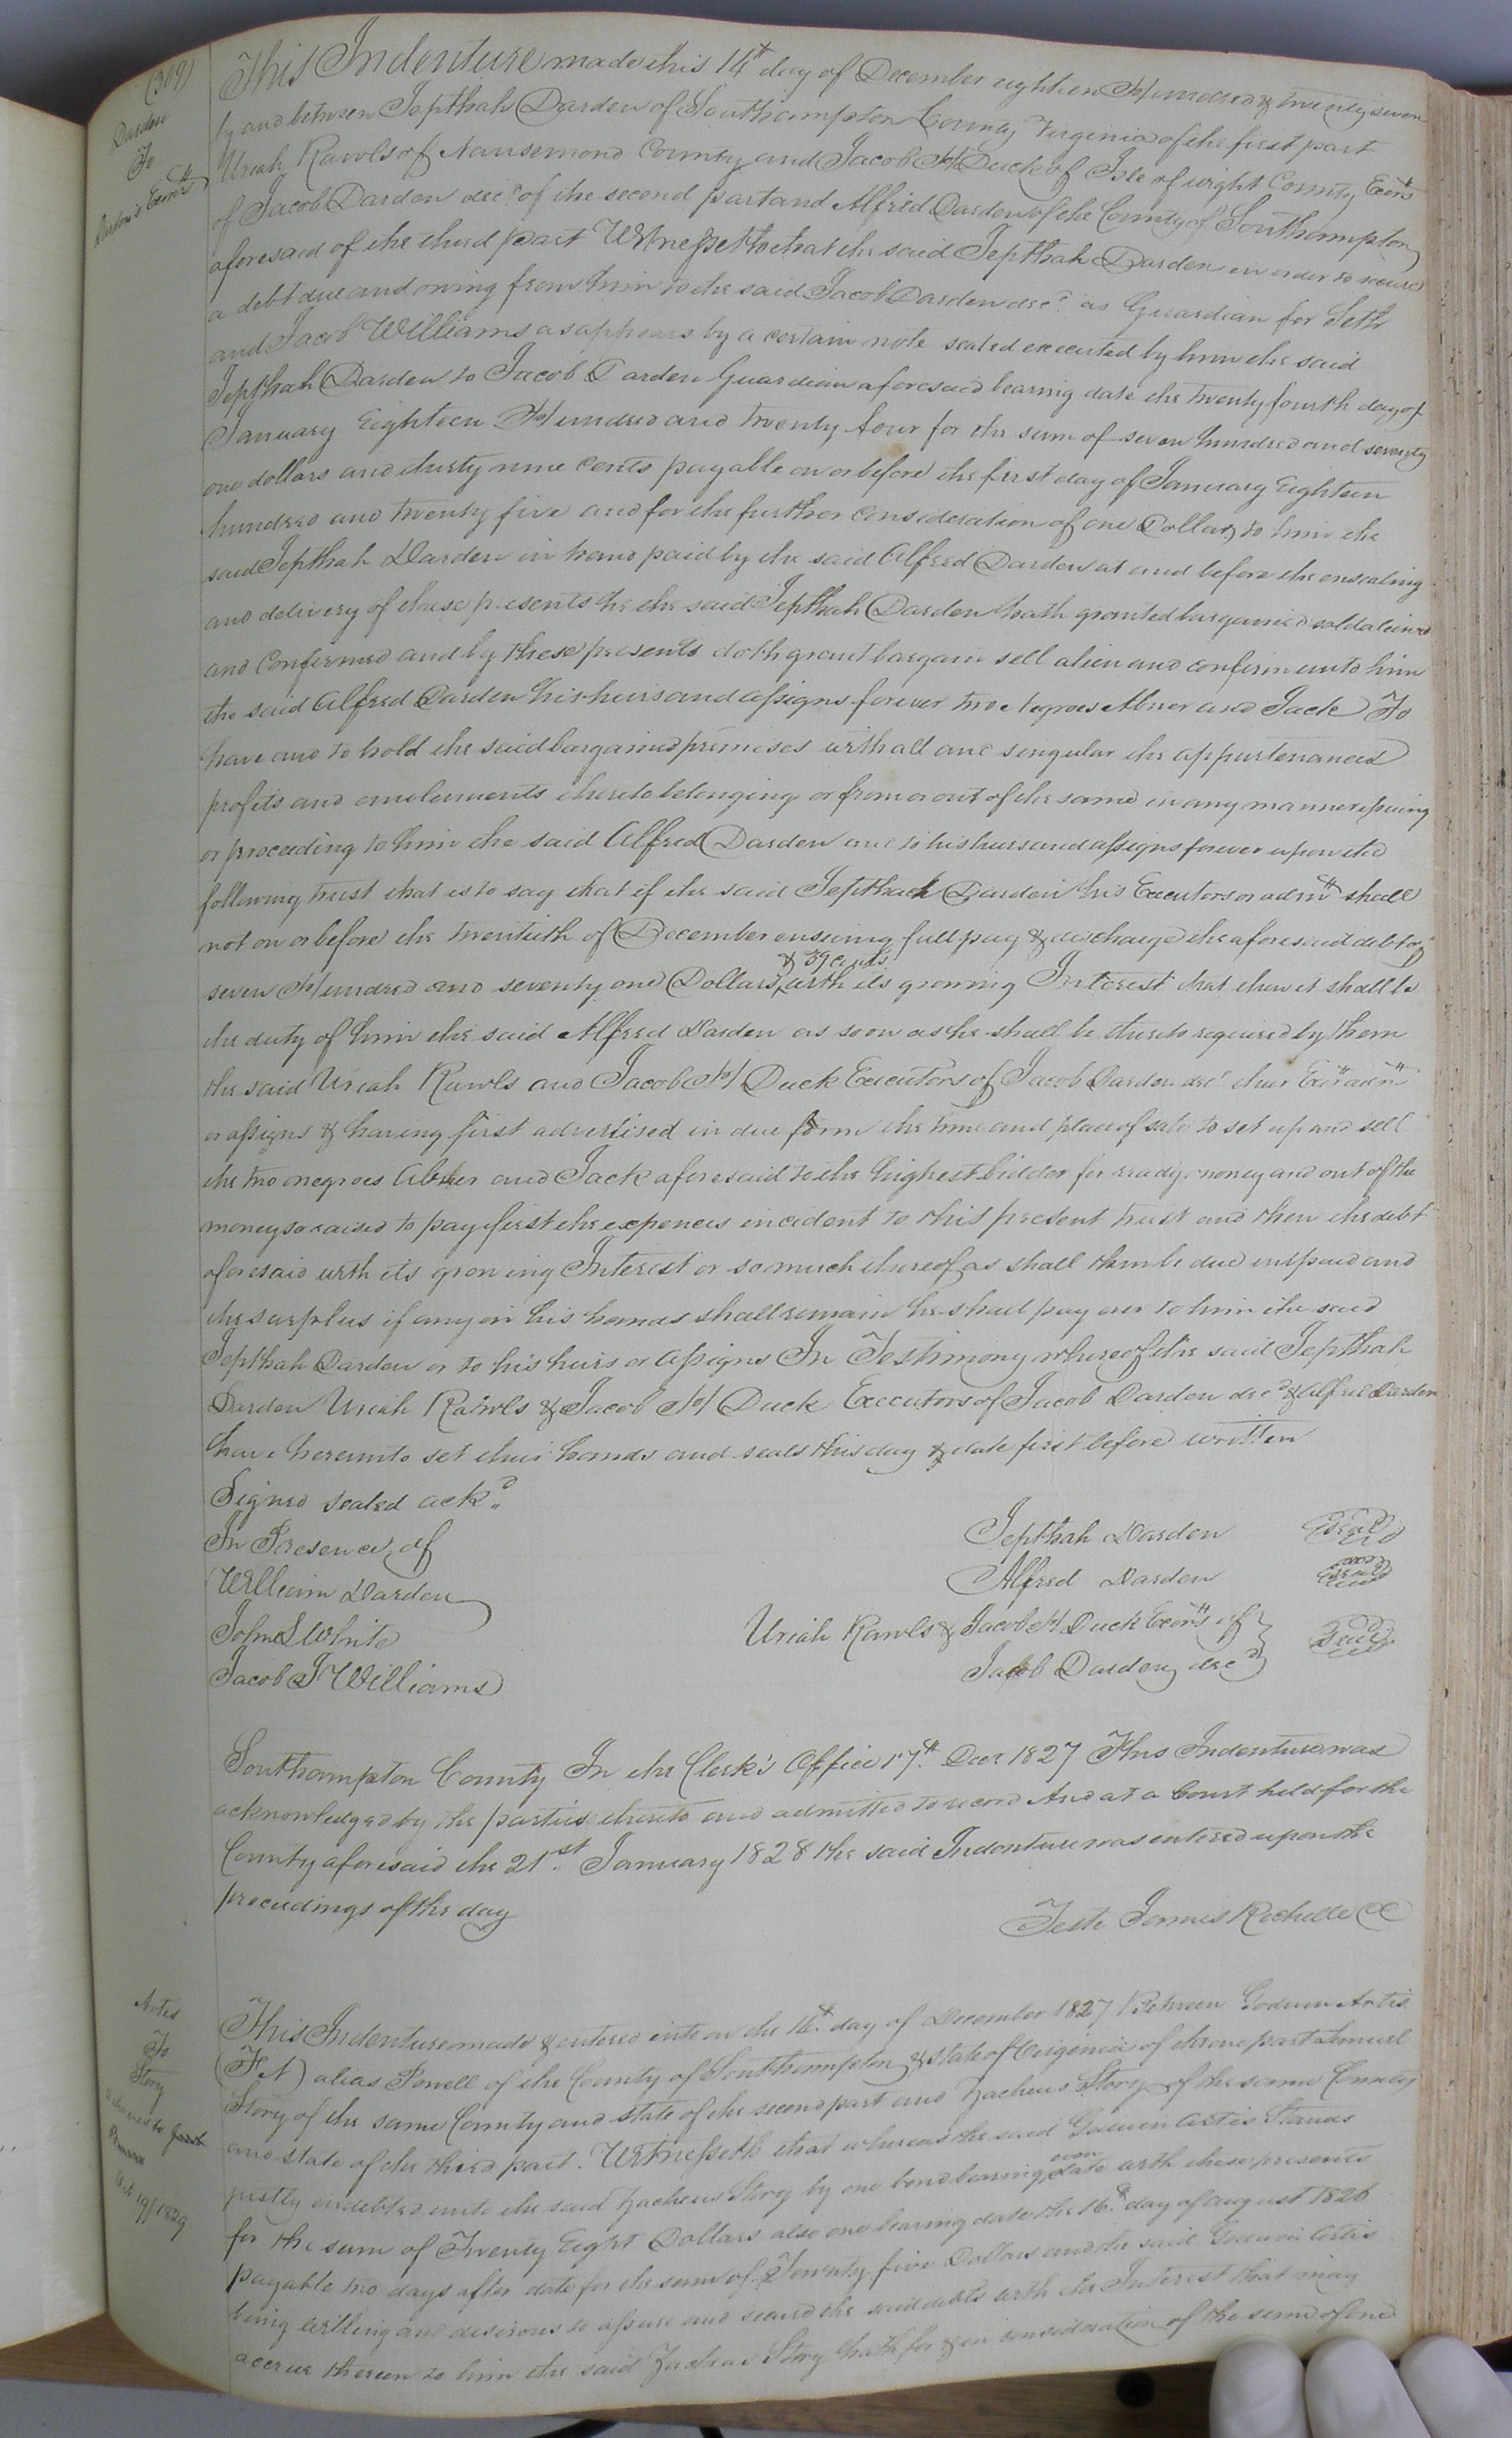 (309)
Darden
To
Darden's Exors
This Indenture made this 14th day of December eighteen Hundred & twenty seven
by and between Jepthah Darden of Southampton County Virginia of the first part
Uriah Rawls of Nansemond County and Jacob H Duck of Isle of wight County Exors
of Jacob Darden decd of the second part and Alfred Darden of the County of Southampton
aforesaid of the third part Witnesseth that the said Jepthah Darden in order to secure
a debt due and owing from him to the said Jacob Darden decd as Guardian for Seth
and Jacob Williams as appears by a certain note sealed executed by him the said
Jepthah Darden to Jacob Darden Guardian aforesaid bearing date the twenty fourth day of
January Eighteen Hundred and twenty four for the sum of seven hundred and seventy
one dollars and thirty nine cents payable on or before the first day of January Eighteen
hundred and twenty five and for the further consideration of one Dollar to him the
said Jepthah Darden in hand paid by the said Alfred Darden at and before the ensealing
and delivery of these presents he the said Jepthah Darden hath granted bargained sold aliened
and Confirmed and by these presents doth grant bargain sell alien and confirm unto him
the said Alfred Darden his heirs and assigns forever two negroes Abner and Jack To
have and to hold the said bargained premises with all and singular the appurtenances
profits and emoluments thereto belonging or from or out of the same in any manner issuing
or proceeding to him the said Alfred Darden and to his heirs and assigns forever upon the
following trust that is to say that if the said Jepthah Darden his Executors or admrs shall
not on or before the twentieth of December ensuing full pay & discharge the aforesaid debt of
seven Hundred and seventy one Dollars & 39 cents with its growing Interest that then it shall be
the duty of him the said Alfred Darden as soon as he shall be thereto required by them
the said Uriah Rawls and Jacob H Duck Executors of Jacob Darden decd their Exors admrs
or assigns & having first advertised in due form the time and place of sale to set up and sell
the two negroes Abner and Jack aforesaid to the highest bidder for ready money and out of the
money so raised to pay first the expences incident to this present trust and then the debt
aforesaid with its growing Interest or so much thereof as shall then be due unpaid and
the surplus if any in his hands shall remain he shall pay over to him the said
Jepthah Darden or to his heirs or assigns In Testimony whereof the said Jepthah
Darden Uriah Rawls & Jacob H Duck Executors of Jacob Darden decd & Alfred Darden
have hereunto set their hands and seals this day & date first before written
Signed sealed ackd
In Presence of
William Darden
John S White
Jacob J Williams
Jepthah Darden Seal
Alfred Darden Seal
Uriah Rawls & Jacob H Duck Exors of
Jacob Darden decd Seal
Southampton County In the Clerk's Office 17th Decr 1827 This Indenture was
acknowledged by the parties thereto and admitted to record And at a Court held for the
County aforesaid the 21st January 1828 the said Indenture was entered upon the
proceedings of the day
Teste James Rochelle CC
Artis
To
Story
Oct 19/1829
This Indenture made & entered into on the 16th day of December 1827 Between Godwin Artis
(F N) alias Powell of the County of Southampton & state of Virginia of the one part Lemuel
Story of the same County and state of the second part and Zacheus Story of the same County
and state of the third part. Witnesseth that whereas the said Godwin Artis Stands
justly indebted unto the said Zacheus Story by one bond bearing even date with these presents
for the sum of Twenty Eight Dollars also one bearing date the 16th day of august 1826
payable two days after date for the sum of Twenty five Dollars and the said Godwin Artis
being willing and desirous to assure and secure the said debts with the Interest that may
accrue thereon to him the said Zacheus Story hath for & in consideration of the sum of one